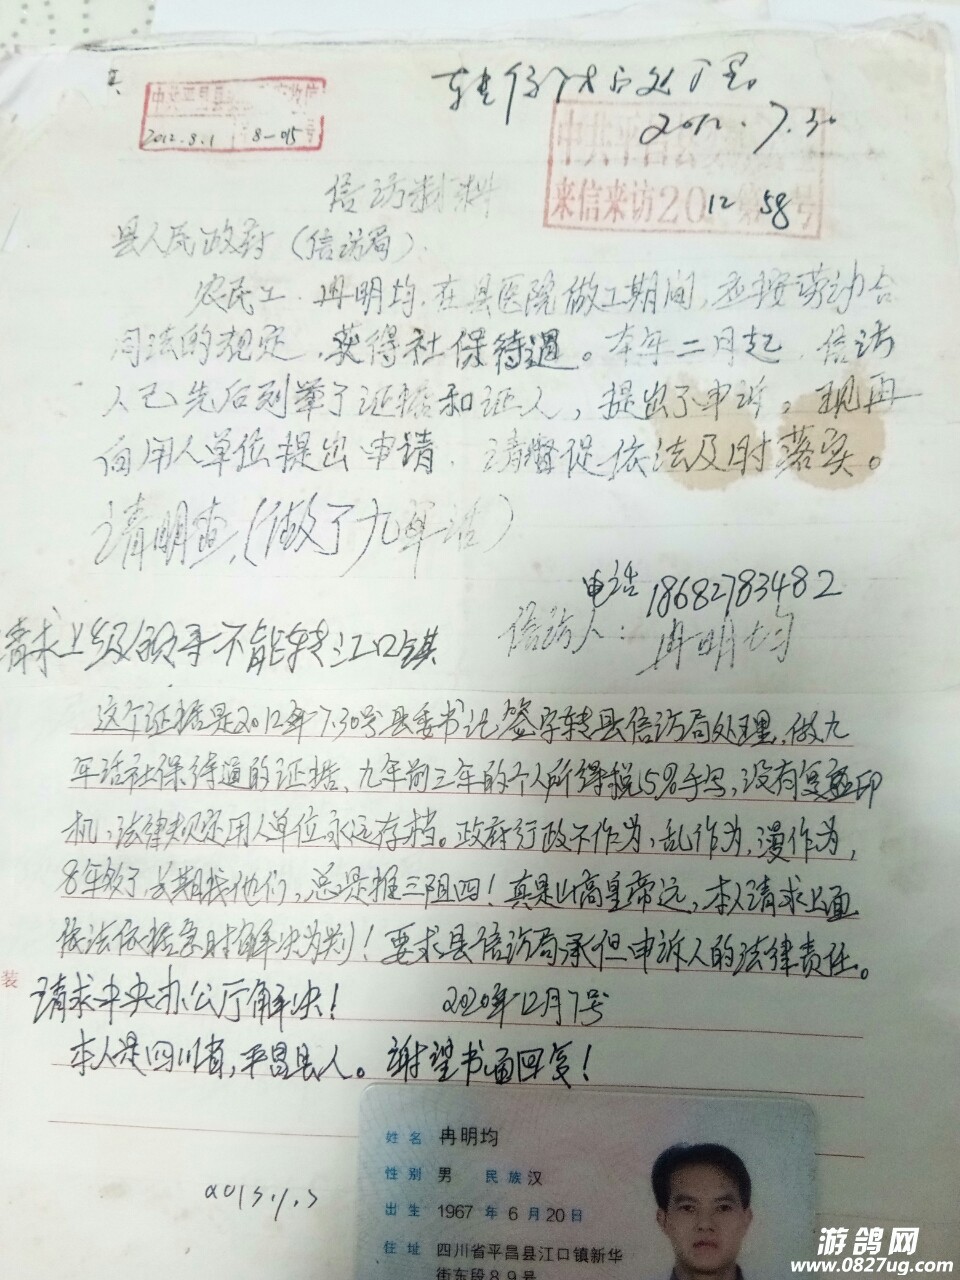 转信访局处理
2012.7.30
2012.8.1 8-015号
中共平昌县
来信来访2012第58号
信访材料
县人民政府(信访局)
农民工冉明均,在县医院做工期间,应按劳动合
同法的规定,获得社保待遇。本年二月起,信访
人已先后列举了证据和证人,提出了申诉。现再
向用人单位提出申请,请督促依法及时落实。
请明查,(做了九年活)
电话18682783482
信访人:冉明均
请求上级领导不能转江口镇
这个证据是2012年7.30号县委书记签字转县信访局处理,做九
年活社保待遇的证据,九年前三年的个人所得税5%手写,没有复印
机,法律规定用人单位永远存档。政府行政不作为,乱作为,漫作为,
8年多了长期找他们,总是推三阻四!真是山高皇帝远,本人请求上面
依法依据急时解决为判!要求县信访局承但申诉人的法律责任。
请求中央办公厅解决! 2020年12月7号
本人是四川省,平昌县人。谢望书面回复!
装
姓名 冉明均
性别 男 民族 汉
出生 1967年6月20日
住址 四川省平昌县江口镇新华
街东段89号
2013.1.3
游鸽网
www.0827ug.com